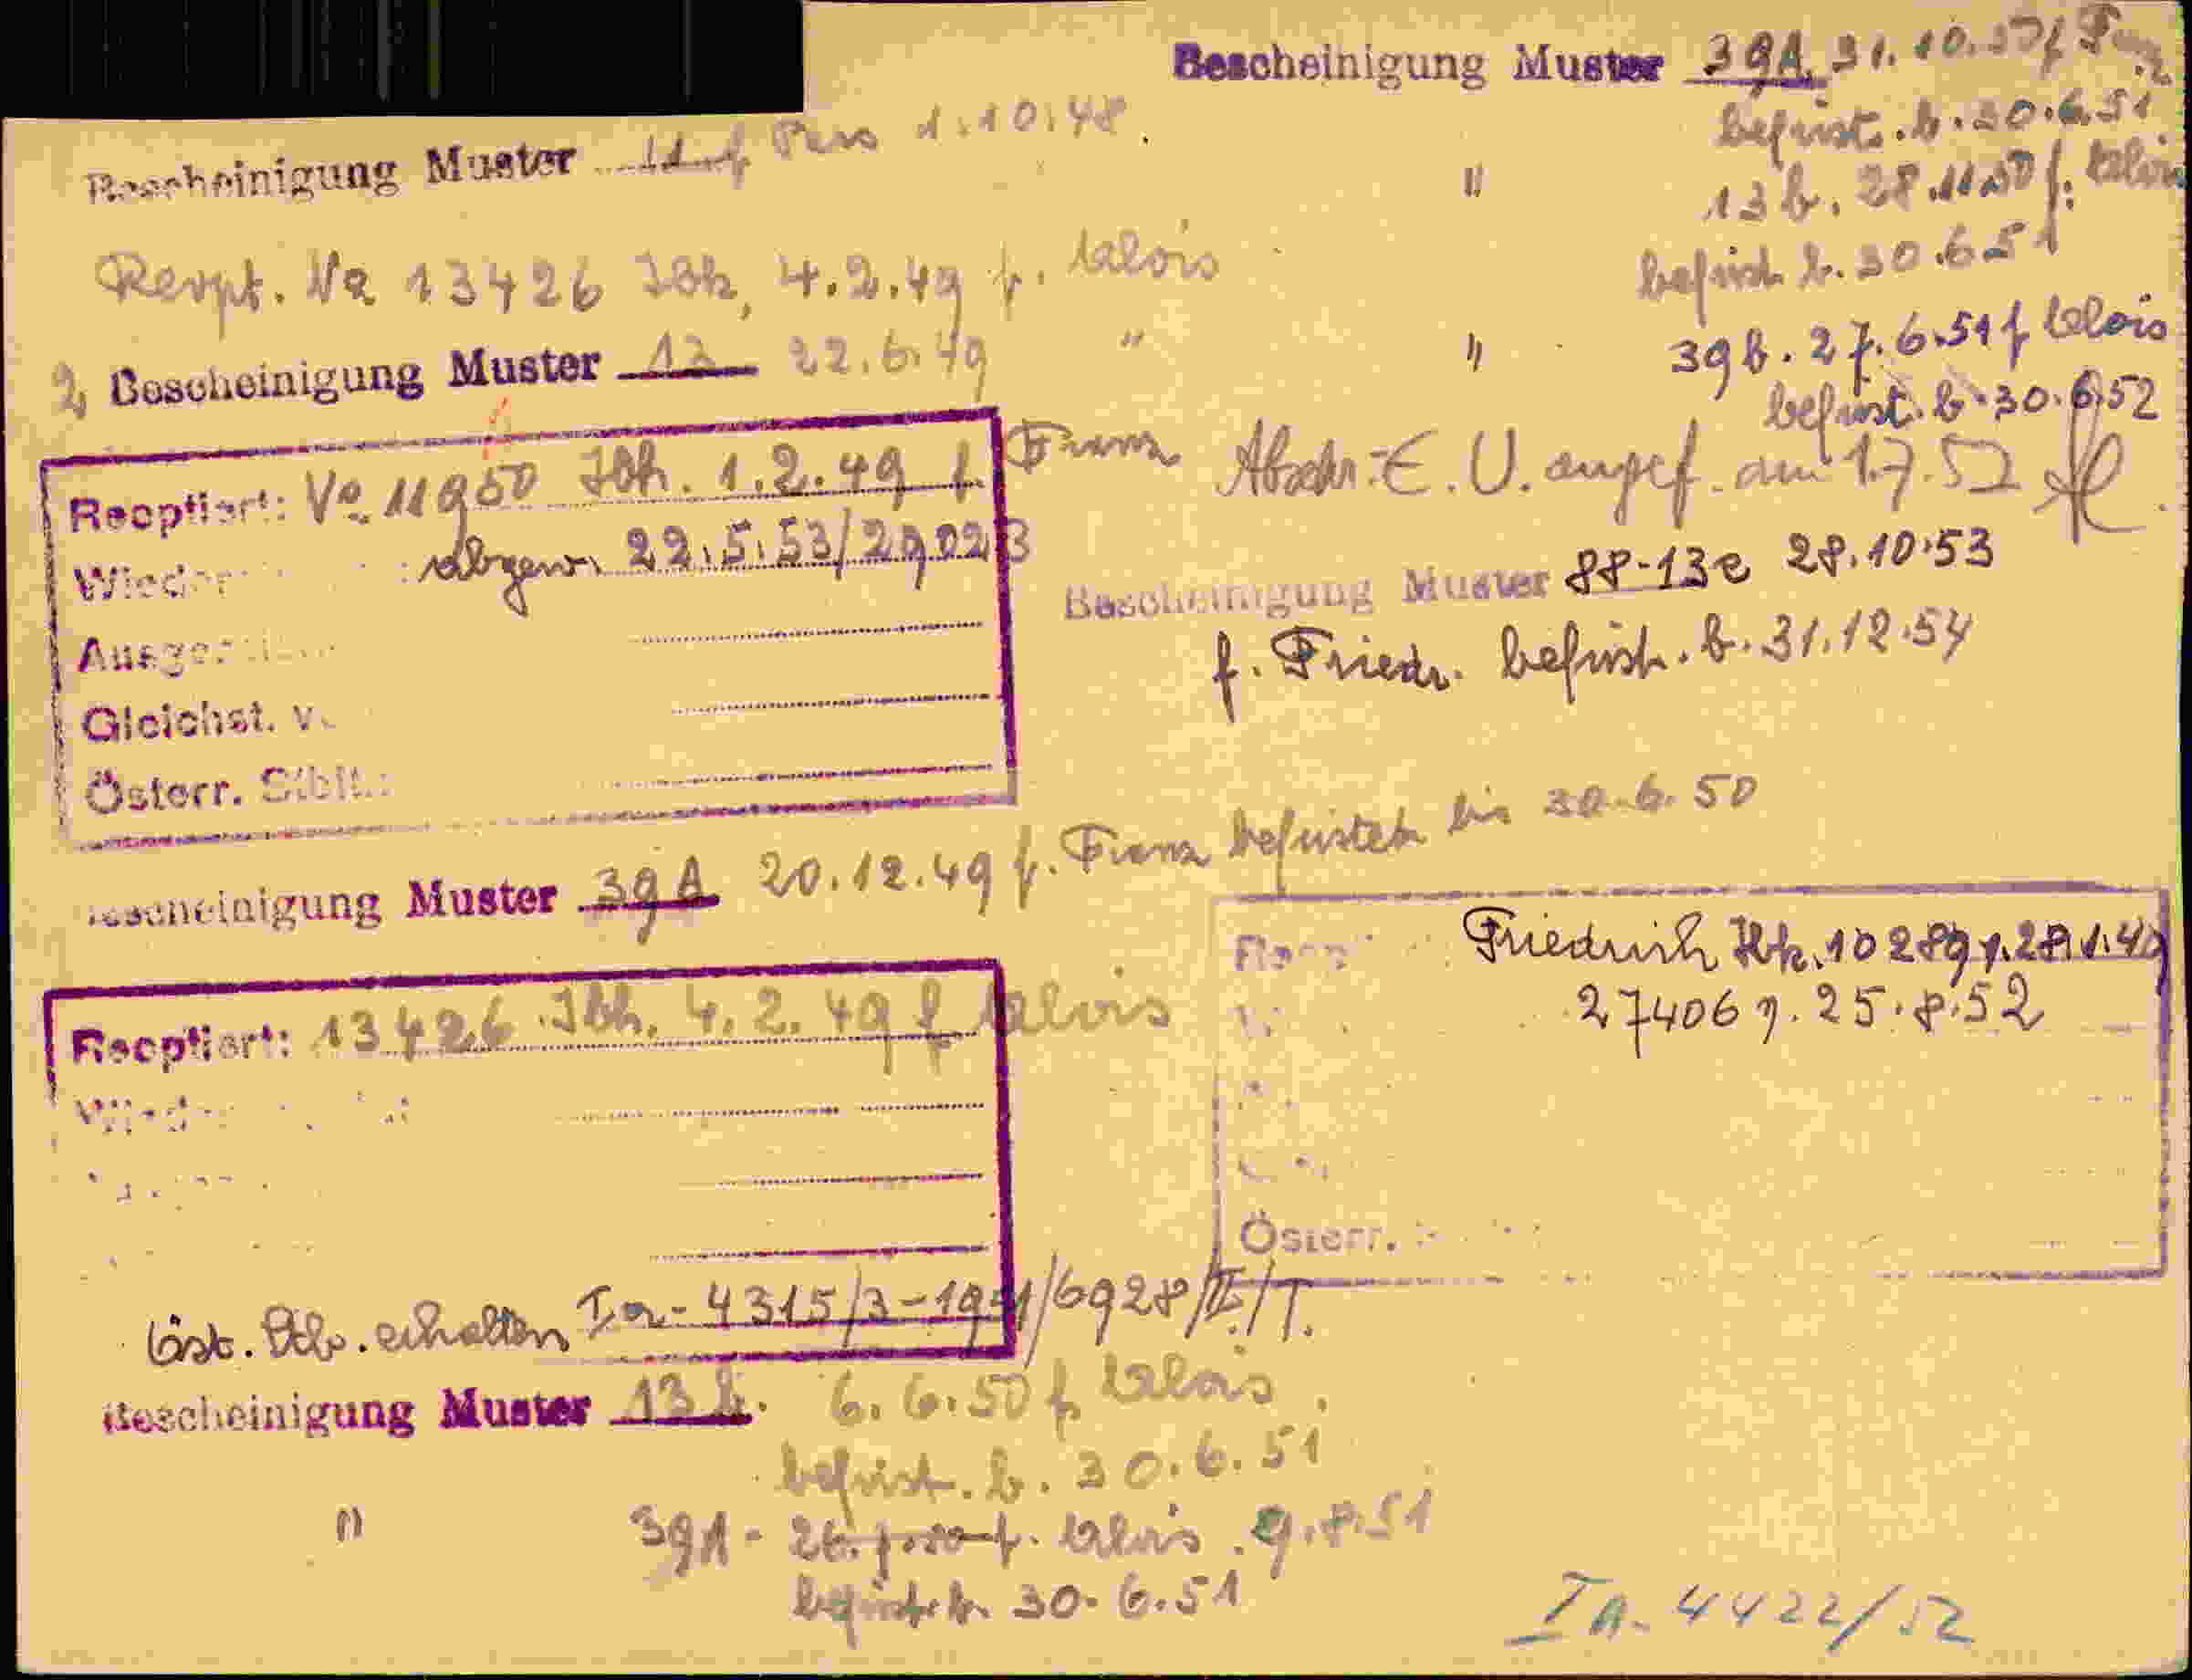 Bescheinigung Muster 39A 31.10.50 f
befrist. b. 30.6.51
" 13 b. 28.11.50 f. Alois
befrist. b. 30.6.51
" 39 b. 27.6.51 f Alois
befrist. b. 30.6.52
Bescheinigung Muster 11 f Pers 1.10.48.
Reopt. Va 13426 Ibk, 4.2.49 f. Alois
2, Bescheinigung Muster 13 22.6.49 "
Reoptiert: Va 11950 Ibk. 1.2.49 f. Franz
abgew. 22.5.53/29023
Gleichst. v.
Österr. Stblt.:
E.U. am 1.7.52
Bescheinigung Muster 88-13e 28.10.53
f. Friedr. befrist. b. 31.12.54
Bescheinigung Muster 39A 20.12.49 f. Franz befristet bis 30.6.50
Reoptiert: 13426 Ibk. 4.2.49 f Alois
Öst. Stb. erhalten Ia-4315/3-1951/6928/II/T.
Friedrich Ibk. 10289 v. 28.1.49
27406 v. 25.8.52
Österr.
Bescheinigung Muster 13 b. 6.6.50 f Alois.
befrist. b. 30.6.51
" 39A - f. Alois. 9.8.51
befrist. b. 30.6.51
Ia-4422/52